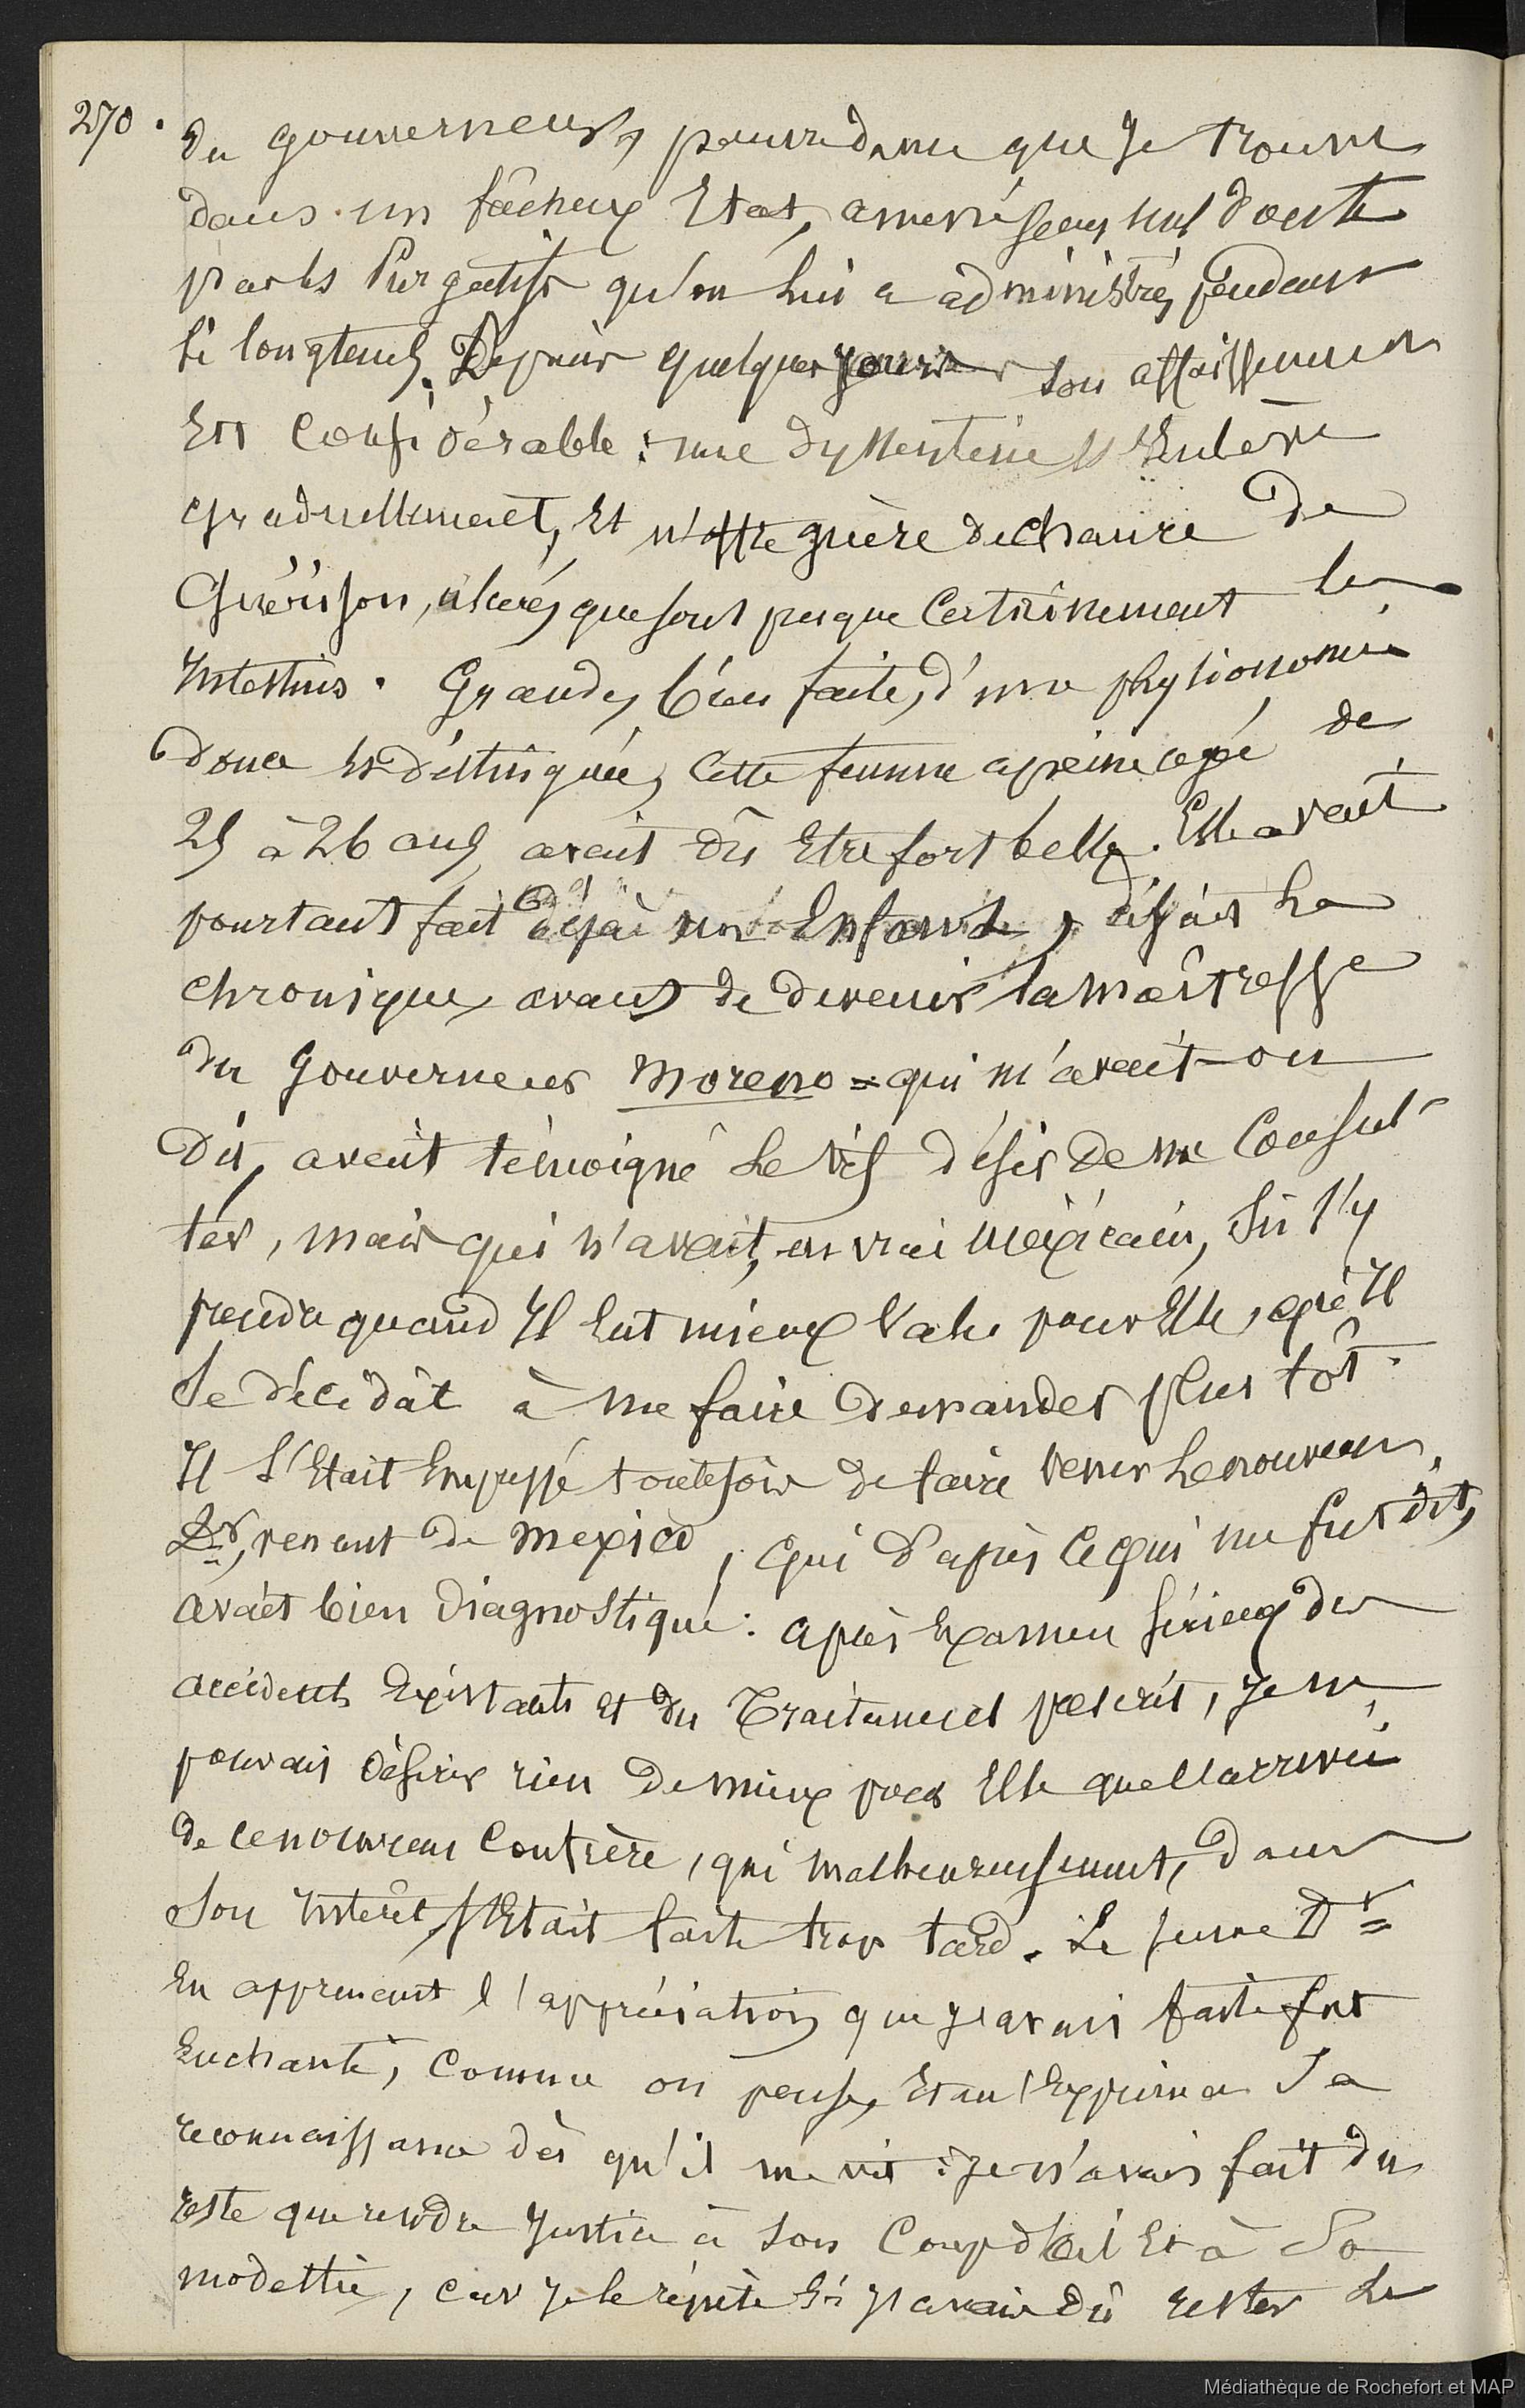 270.
du gouverneur, pauvre dame que je trouve
dans un fâcheux Etat, amené sans nul doute
par les Purgatifs qu'on lui a administrés, pendant
si longtems. Depuis quelques jours son affaissement
Est Considérable : une dyssenterie l'Enlève
graduellement, Et n'offre guère de chance de
Guérison, ulcérés que sont presque Certainement les
Intestins. Grande, bien faite, d'une physionomie
douce Et distinguée, Cette femme a peine agée de
25 à 26 ans, avait dû Etre fort belle. Elle avait
pourtant fait déjà un Enfant, disait la
chronique, avant de devenir la maîtresse
du Gouverneur Moreno = qui m'avait-on
Dit, avait témoigné le vif désir de me Consul-
ter, mais qui n'avait, en vrai Mexicain, su s'y
prendre quand Il Eut mieux Valu pour Elle, qu'Il
se décidât à me faire demander plus tôt.
Il s'Etait Empressé toutefois de faire venir le nouveau
Dr, venant de Mexico, qui d'après ce qui me fut dit,
avait bien diagnostiqué : après Examen sérieux des
accidents Existants et du Traitement prescrit, Je ne
pouvais désirer rien de mieux pour Elle que l'arrivée
de ce nouveau Confrère, qui malheureusement, dans
son Intérêt, s'Etait faite trop tard. Le jeune Dr =
En apprenant l'appréciation que j'avais faite fut
Enchanté, Comme on pense, Et m'Exprima Sa
reconnaissance dès qu'il me vit : Je n'avais fait du
reste que rendre Justice à son Coup d'œil Et à Sa
modestie, car Je le répète Si J'avais dû rester le